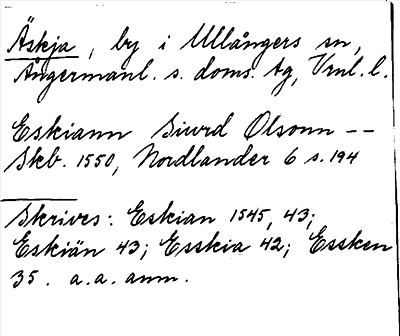 Äskja, by i Ullångers sn,
Ångermanl. s. doms. tg, Vrnl. l.
Eskiann Siurd Olsonn --
Skb. 1550, Nordlander 6 s. 194
Skrives: Eskian 1545, 43;
Eskiän 43; Esskia 42; Essken
35. a.a. anm.